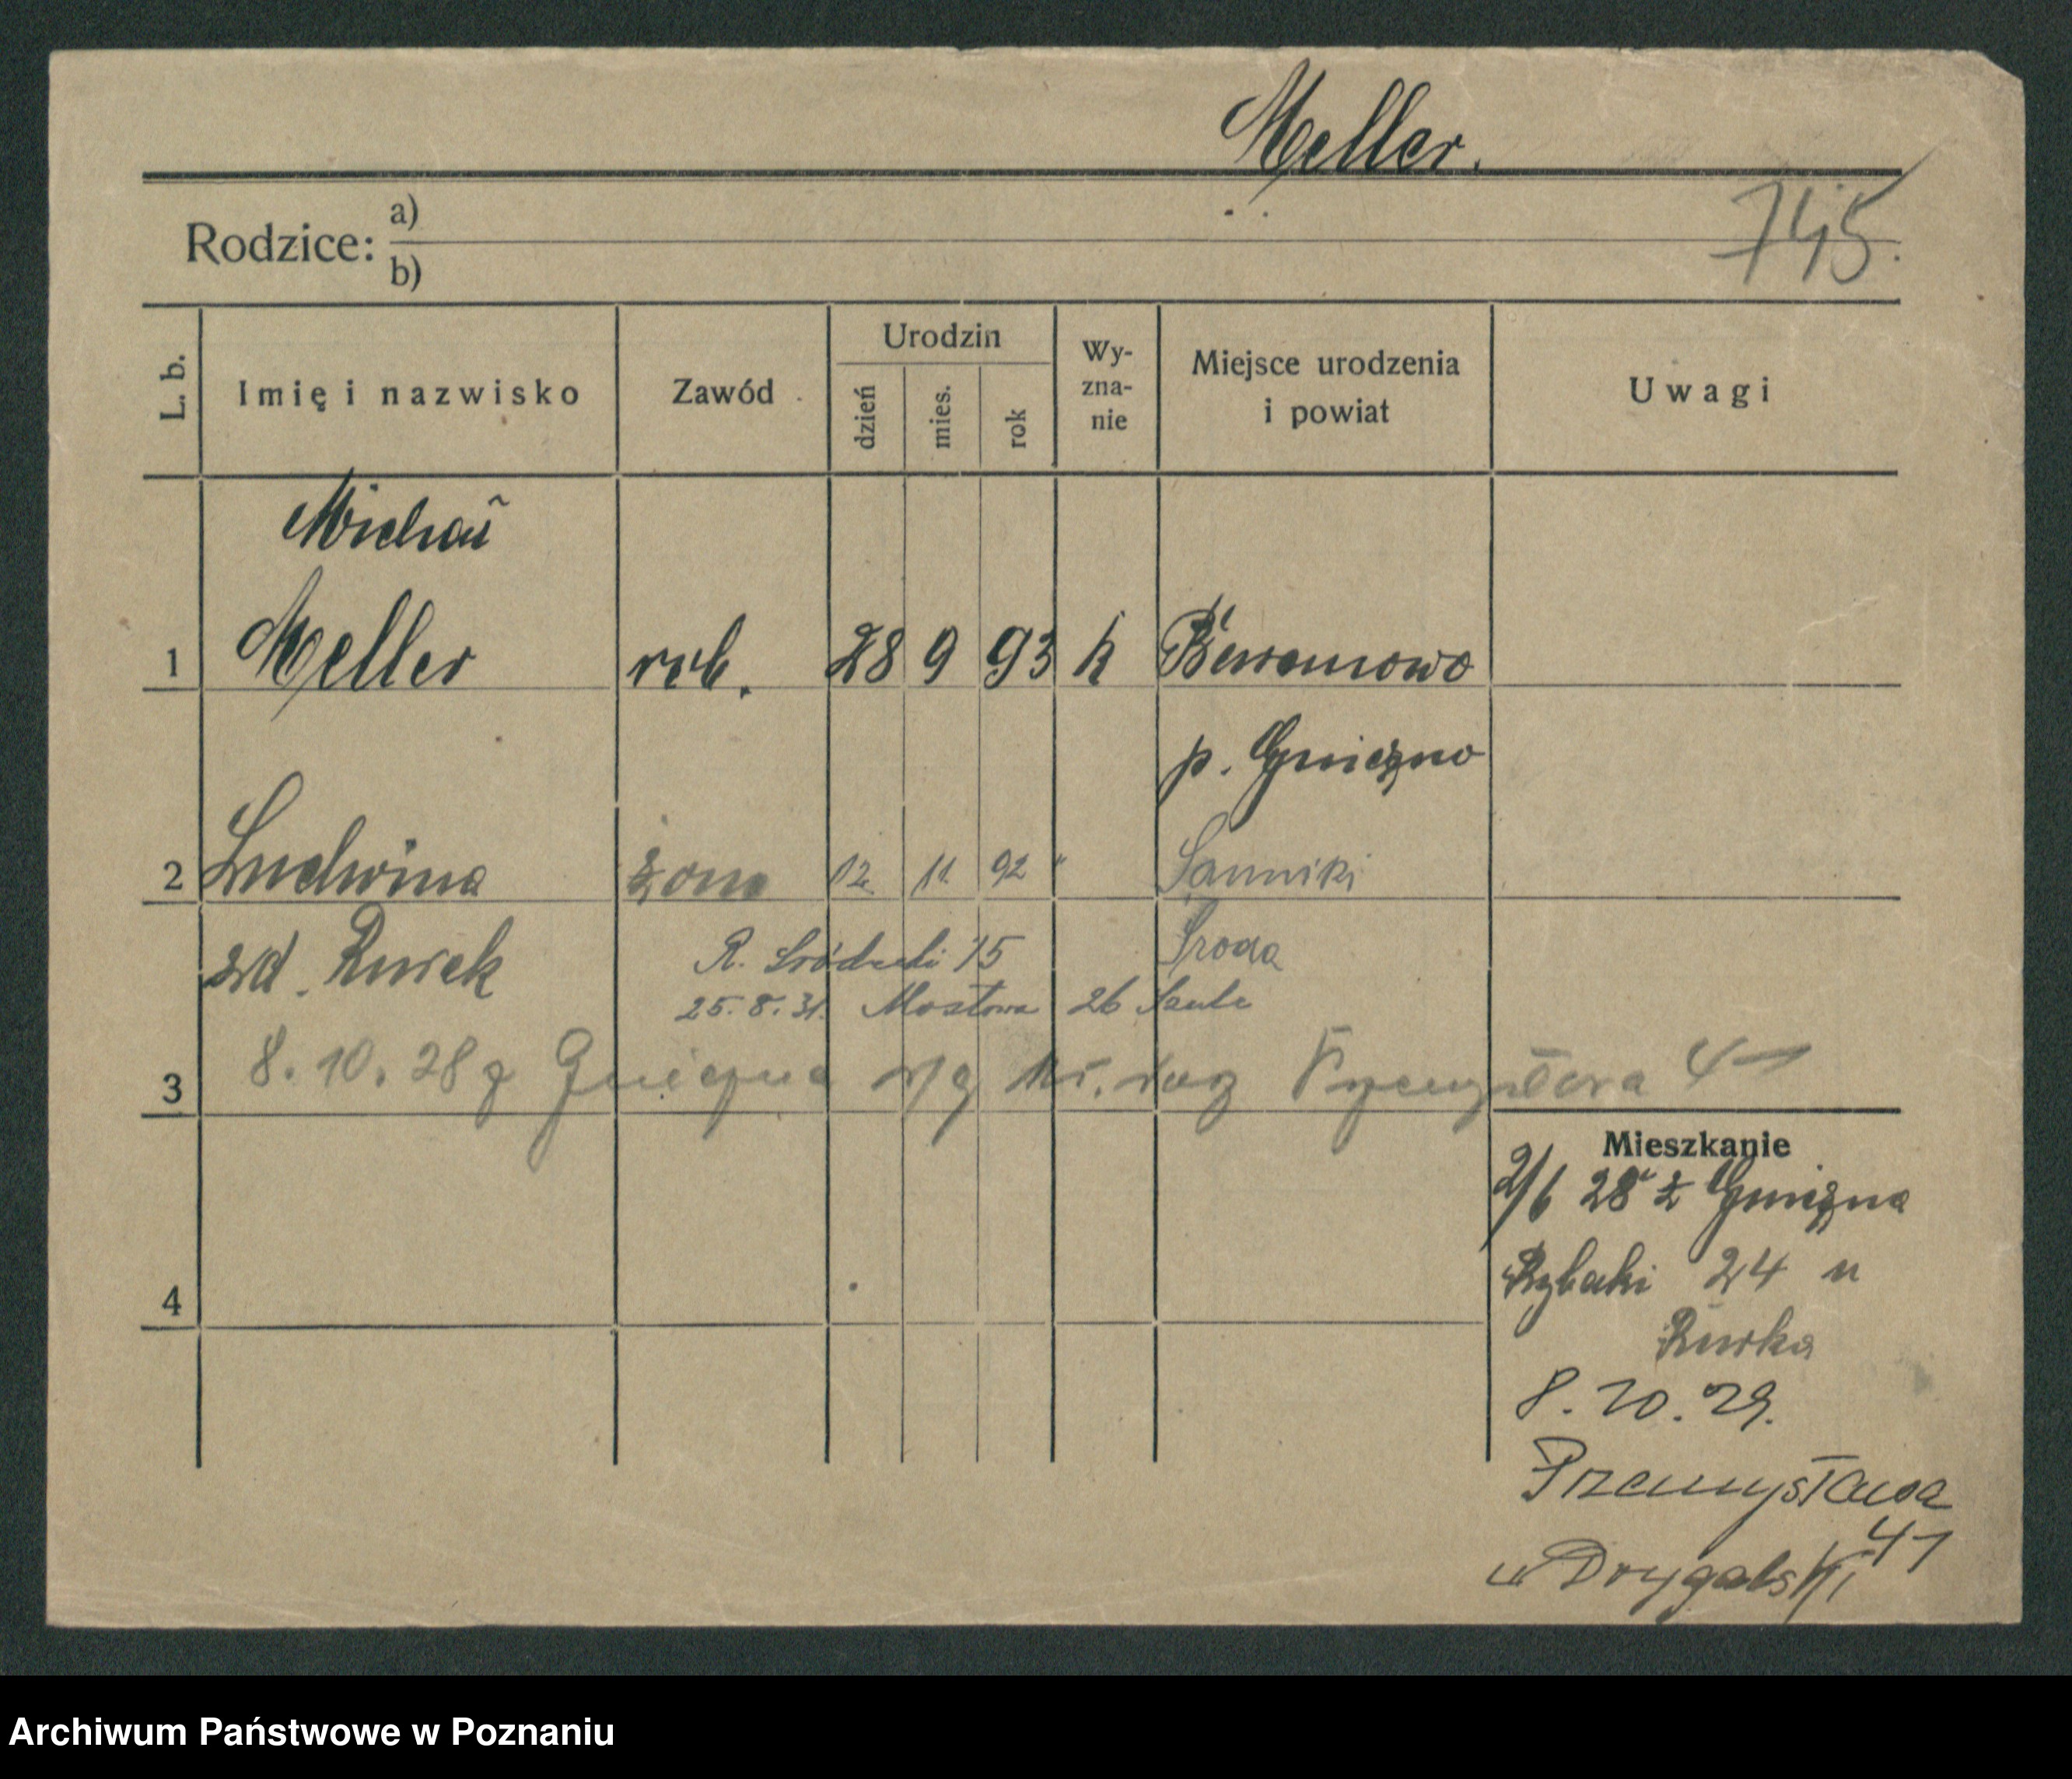 Meller.
745.
Rodzice: a)
b)
L. b. Imię i nazwisko Zawód Urodzin dzień mies. rok Wy-zna-nie Miejsce urodzenia i powiat Uwagi
Michał
1 Meller rob. 28 9 93 k
p. Gniezno
2 Ludwina żona 12 11 92 " Sanniki
zd. Rurek R. Śródecki 15 Środa
25.8.31. Mostowa 26
3 8.10.28 z Gniezna 41
Mieszkanie
2/6 28 z Gniezna
Rybaki 24 u
Rurka
4
8.10.29.
Przemysława
41
u Drygalski
Archiwum Państwowe w Poznaniu